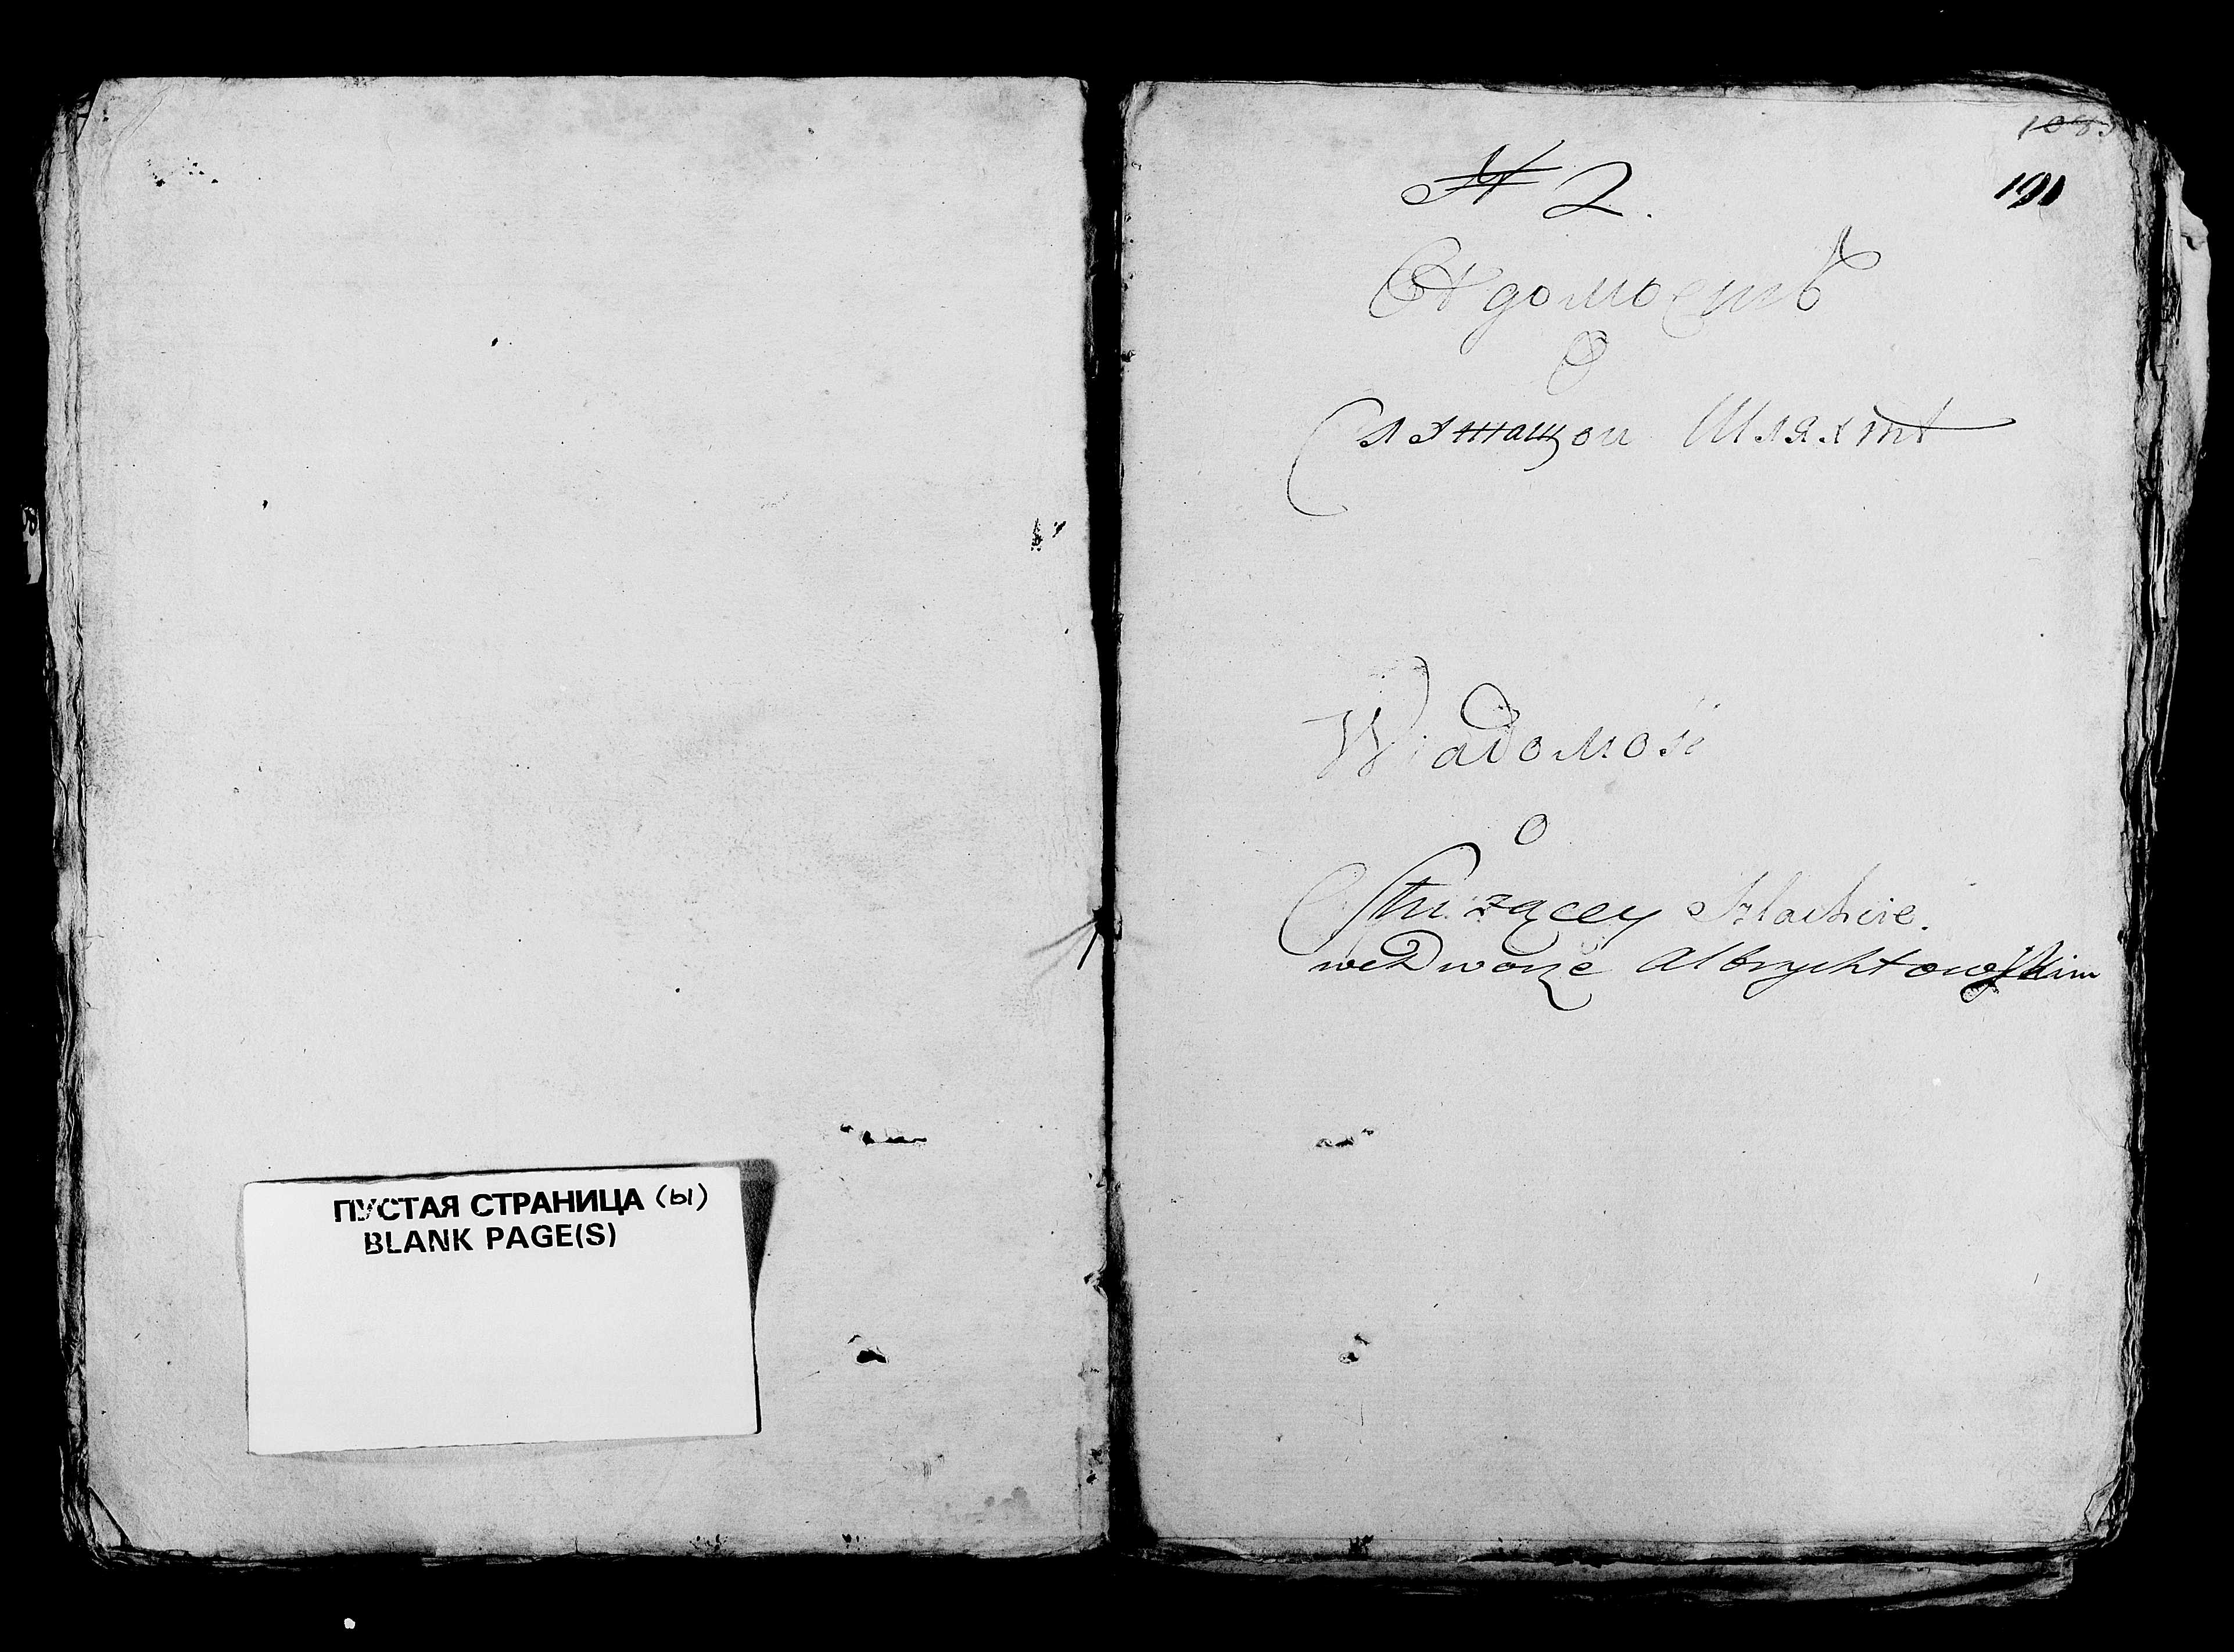 ПУСТАЯ СТРАНИЦА (Ы)
BLANK PAGE(S)
191
№ 2.
Вѣдомость
О
Служащой Шляхтѣ
Wiadomość
O
Służącey Szlachcie.
we Dworze Albrychtowskim